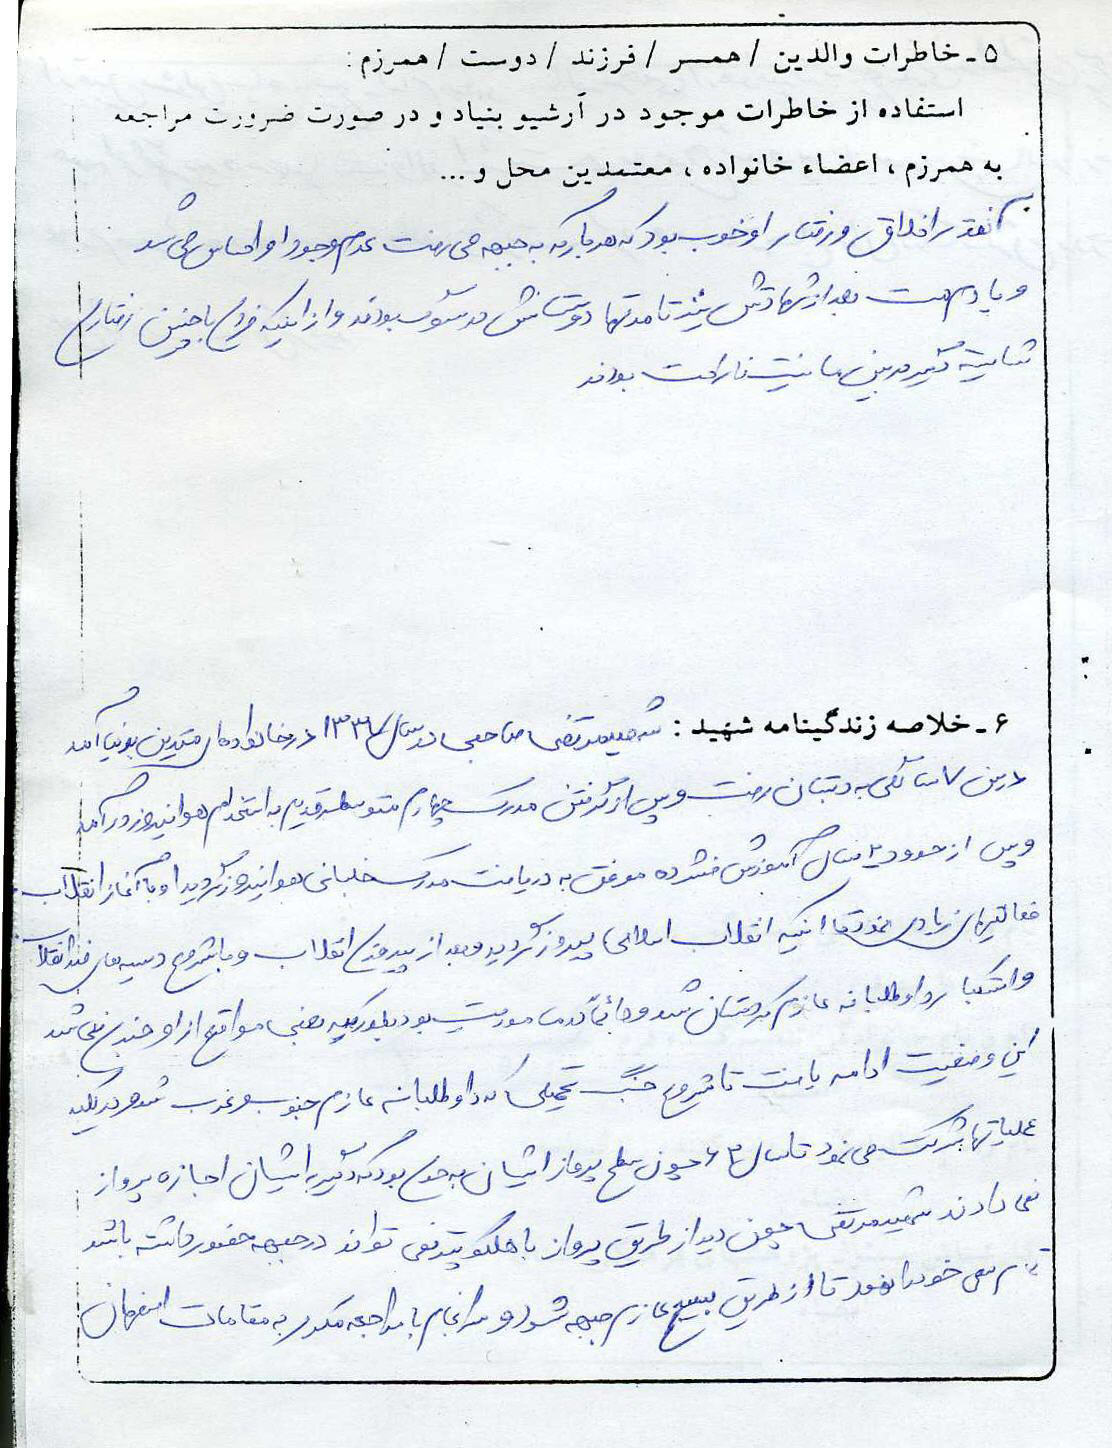 ۵ ـ خاطرات والدین / همسر / فرزند / دوست / همرزم :
استفاده از خاطرات موجود در آرشیو بنیاد و در صورت ضرورت مراجعه
به همرزم ، اعضاء خانواده ، معتمدین محل و ...
آنقدر اخلاق و رفتار او خوب بود که هر بار که به جبهه می رفت عدم وجود او احساس می شد
و یادم هست بعد از شهادتش تا مدتها دوستانش در سوگ بودند و از اینکه فردی با چنین رفتاری
شایسته دیگر در بین ما نیست ناراحت بودند
۶ ـ خلاصه زندگینامه شهید : شهید مرتضی صاحبی در سال ۱۳۳۶ در خانواده ای متدین بدنیا آمد
در سن ۷ سالگی به دبستان رفت و پس از گرفتن مدرک چهارم متوسطه قدیم به استخدام هوانیروز درآمد
و پس از حدود ۲ سال آموزش فشرده موفق به دریافت مدرک خلبانی هوانیروز گردید او با آغاز انقلاب
فعالیتهای زیادی نمود تا اینکه انقلاب اسلامی پیروز گردید و بعد از پیروزی انقلاب و با شروع دسیسه های ضد انقلاب
و استکبار داوطلبانه عازم کردستان شد و دائماً در ماموریت بود بطوریکه بعضی مواقع از او خبری نمی شد
این وضعیت ادامه یافت تا شروع جنگ تحمیلی که داوطلبانه عازم جنوب و غرب شد و در کلیه
عملیاتها شرکت می نمود تا سال ۶۳ چون سطح پرواز ایشان به حدی بود که دیگر به ایشان اجازه پرواز
نمی دادند شهید مرتضی چون دید از طریق پرواز با هلیکوپتر نمی تواند در جبهه حضور داشته باشد
سعی خود را نمود تا از طریق بسیج عازم جبهه شود و سرانجام با مراجعه مکرر به مقامات اصفهان